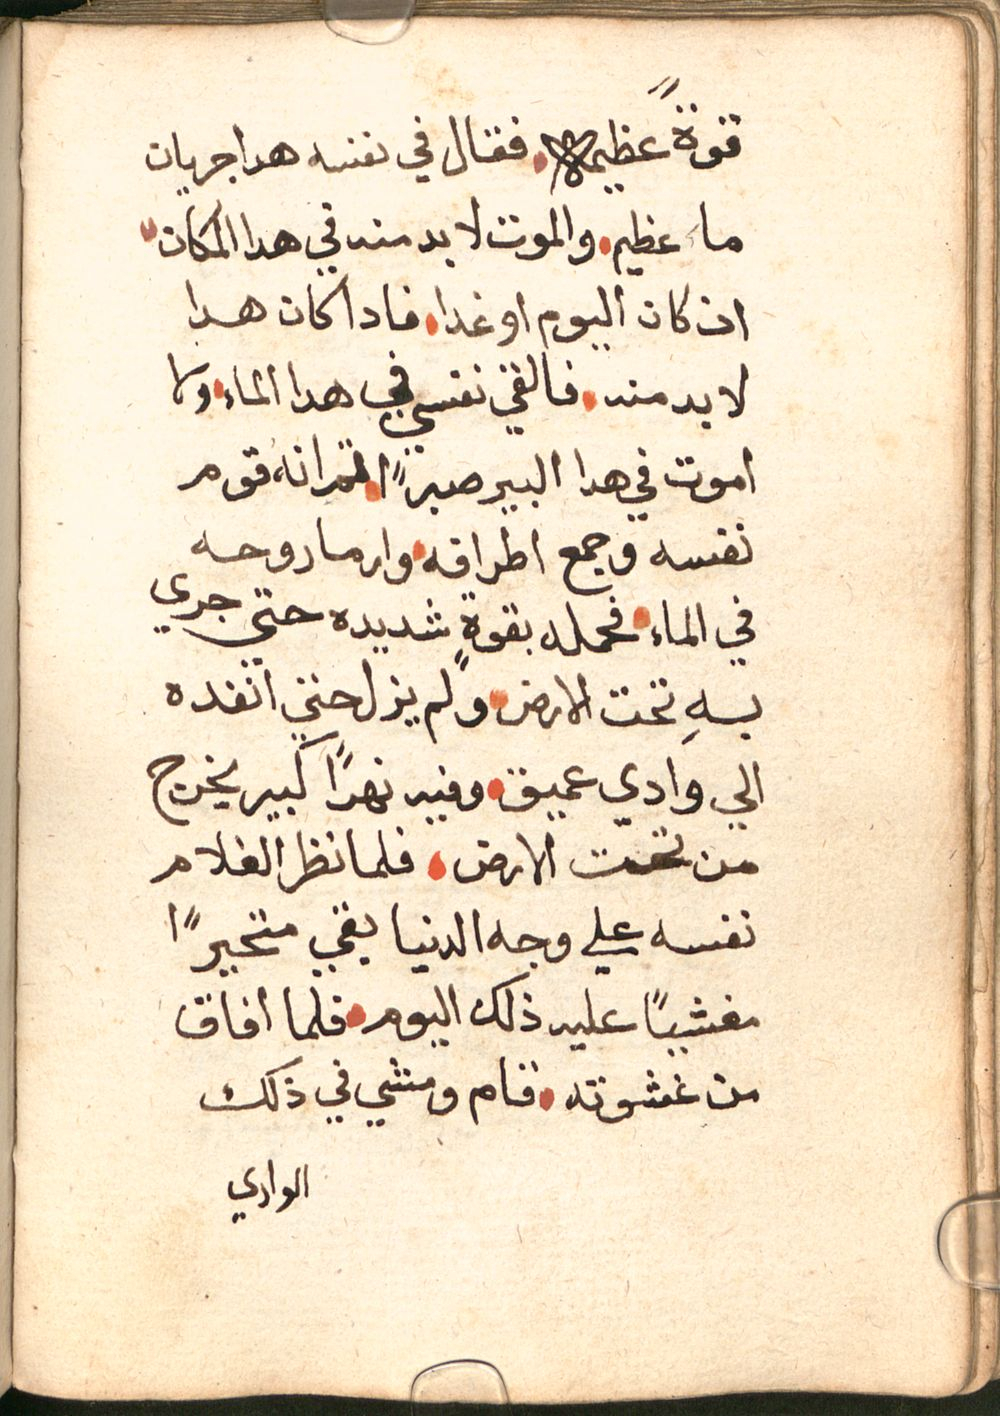 قوةً عظيمه. فقال في نفسه هدا جريان
ما عظيم. والموت لا بد منه في هدا المكان
ان كان اليوم او غدا. فادا كان هدا
لا بد منه. فالقي نفسي في هدا الماء. ولا
اموت في هدا البير صبرًا. ثم انه قوم
نفسه وجمع اطرافه. وارما روحه
في الماء. فحمله بقوةٍ شديده حتي جري
بهِ تحت الارض. ولم يزل حتي انفده
الي وادي عميق. وفيه نهرًا كبير يخرج
من تحت الارض. فلما نظر الغلام
نفسه علي وجه الدنيا بقي متحيرًا
مغشيًا عليه ذلك اليوم. فلما افاق
من غشوته. قام ومشي في ذلك
الوادي